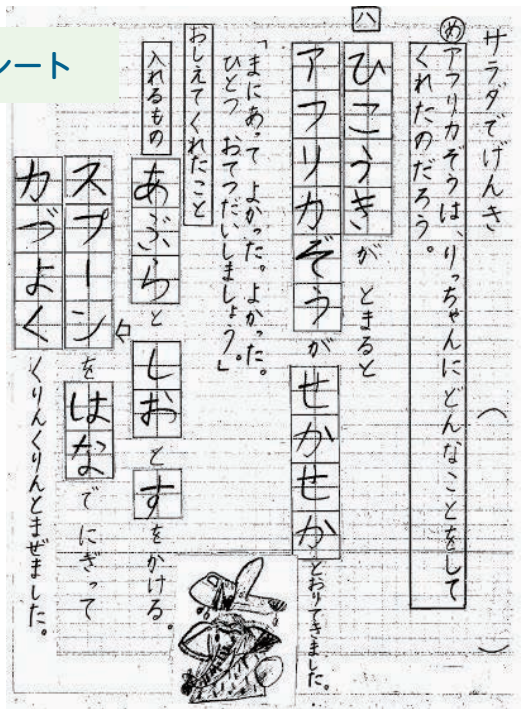 シート
サラダでげんき（　）
め アフリカぞうは、りっちゃんにどんなことをして
くれたのだろう。
八
ひこうきが とまると
アフリカぞうが せかせかとおりてきました。
「まにあって よかった。よかった。
ひとつ おてつだいしましょう。」
おしえてくれたこと
入れるもの あぶらとしおとすをかける。
スプーンをはなでにぎって
力づよくくりんくりんとまぜました。